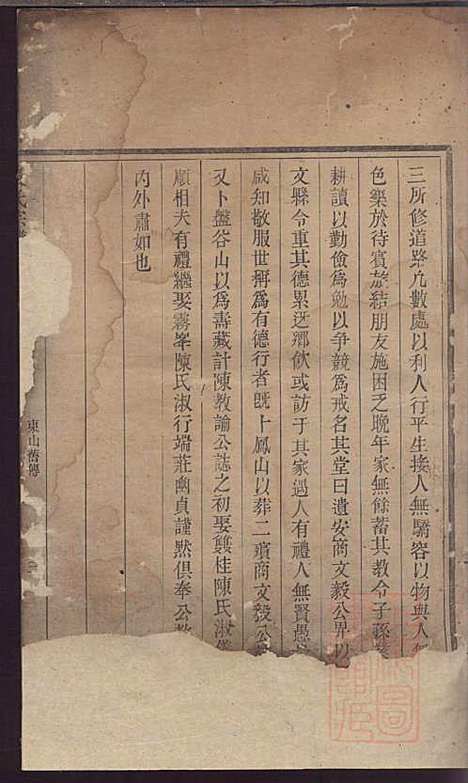 三所修道路凡數處以利人行平生接人無驕容以物與人
色樂於待賓旅結朋友施困乏晚年家無餘蓄其教令子孫
耕讀以勤儉為勉以爭競為戒名其堂曰遺安商文毅公畀以
文縣令重其德累迓鄉飲或訪于其家遇人有禮人無賢愚
咸知敬服世稱為有德行者既卜鳳山以葬二殯商文毅公
又卜盤谷山以為壽藏計陳教諭公誌之初娶雙桂陳氏淑
順相夫有禮繼娶霧峯陳氏淑行端莊幽貞謹默俱奉公
內外肅如也
東山舊傳